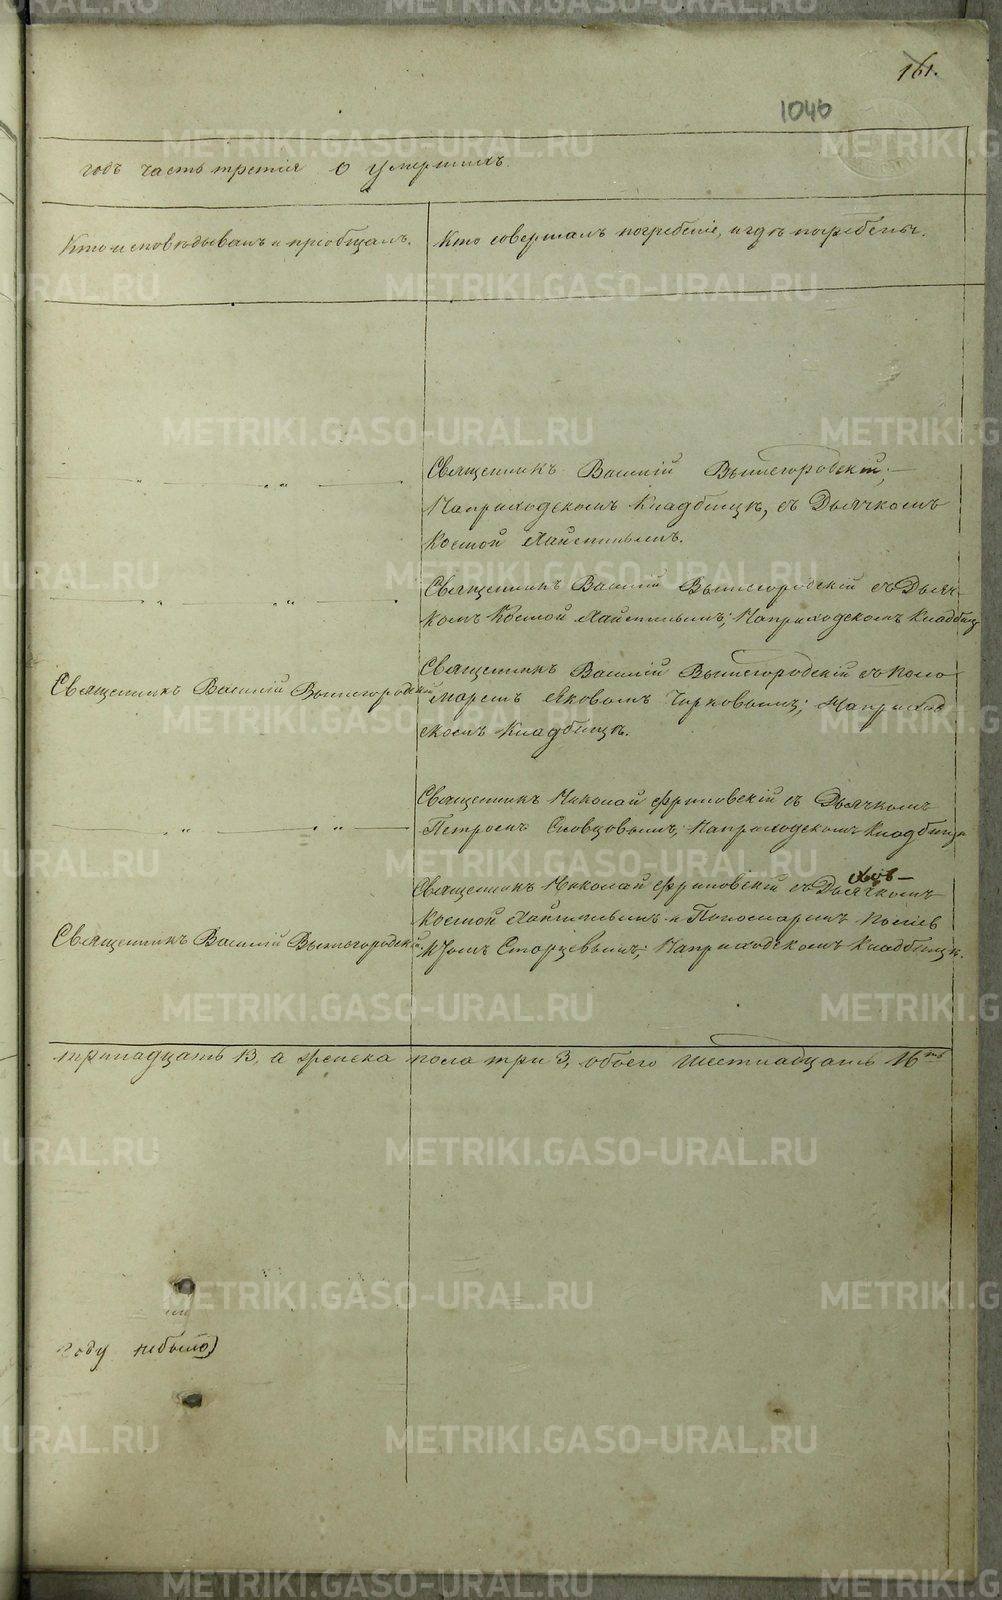 161.
1046
годъ часть третія о умершихъ.
Кто исповѣдывалъ и пріобщалъ.
Кто совершалъ погребеніе, и гдѣ погребены.
Священникъ Василій Вышегородскій;
На приходскомъ Кладбищѣ, съ Дьячкомъ
Космой
Священникъ Василій Вышегородскій съ Дьяч-
комъ Космой На приходскомъ Кладбищ
Священникъ Василій Вышегородскій
Священникъ Василій Вышегородскій съ Поно
маремъ Яковомъ Чирковымъ; На приход
скомъ Кладбищѣ.
Священникъ Николай Фриновскій съ Дьячкомъ
Петромъ Словцовымъ; На приходскомъ Кладбищѣ
Священникъ Николай Фриновскій съ Дьячкомъ
Космой и Пономаремъ
Священникъ Василій Вышегородскій.
Старцевымъ; На приходскомъ Кладбищѣ.
тринадцать 13, а женска пола три 3, обоего шестнадцать 16ть
году небыло)
METRIKI.GASO-URAL.RU